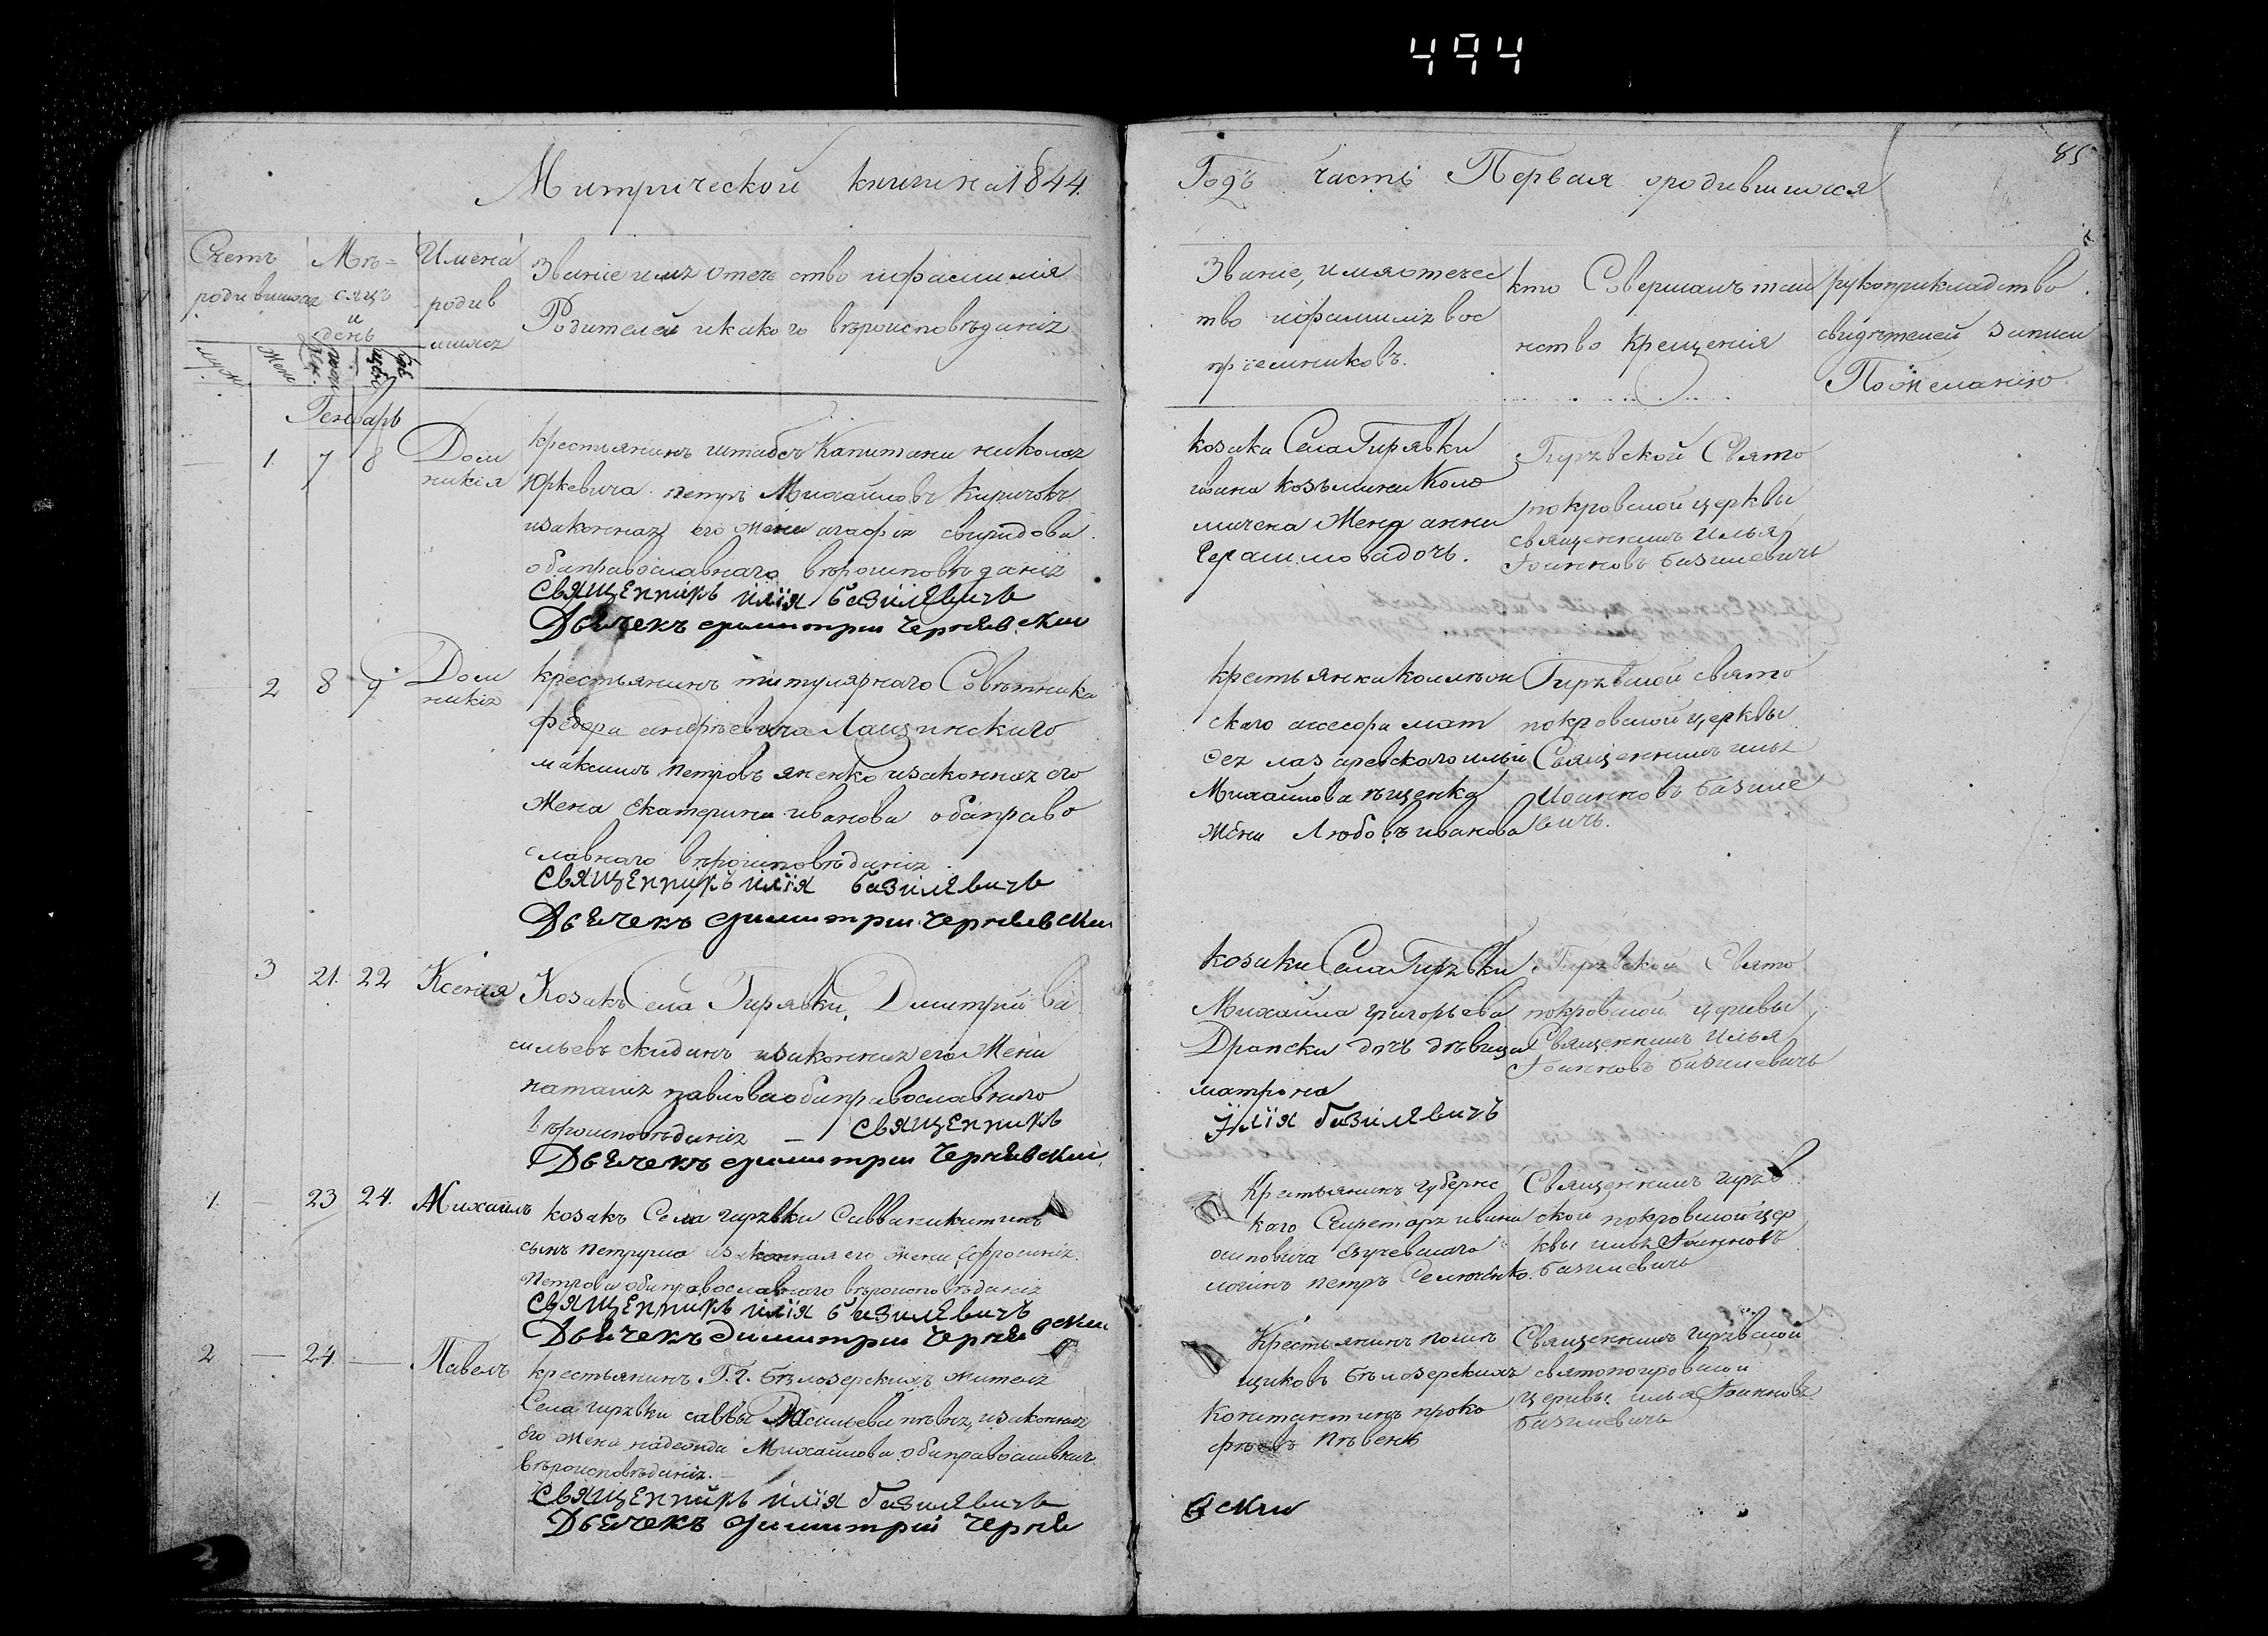 494
85
Митрической книги на 1844.
Годъ часть Первая ородившихся
Счетъ
родившихся
муж.
жен.
Мѣ=
сяцъ
и
день
Имена
родив
шихся
Званіе имя отечество ифамилія
Родителей икакого вѣроисповѣданія
Званіе, имяотечес
тво ифамилія вос
пріемниковъ.
кто Совершалъ таи
нство Крещенія
рукоприкладство
свидѣтелей записи
Пожеланію.
Генварь
1. 7 8
Дом
никія
крестьянинъ штабсъ Капитана николая
Юркевича петръ Михайловъ Киричокъ
изаконная его жена агафія свиридова
обаправославнаго вѣроисповѣданія
СВЯЩЕННИКЪ ИЛІЯ базилЕвичъ
Дьячекъ Димитрии Чернявскии
козака Села Гирявки
ивана козьмина Коло
мичена Жена анна
Герасимова дочь.
Гирявской Свято
покровской церквы
священникъ Илья
Іоанновъ базилевичъ
2 8 9
Дом
никія
крестьянинъ титулярнаго Совѣтника
федора андрѣевича Лащинскаго
максимъ петровъ яненко изаконная его
Жена Екатерина иванова обаправо
славнаго вѣроисповѣданія
СВЯЩЕННИКЪ ИЛІЯ базилЕвичъ
Дьячекъ Димитрии Чернявскии
крестьянка коллѣжи
скаго асесора мат
фея лазаревскаго ильи
Михайлова ищенка
жена Любовъ иванова
Гирявской свято
покровской церквы
Священникъ илья
Иоанновъ базиле
вичъ.
3 21. 22
Ксенія
Козакъ Села Гирявки, Димитрій ва
сильевъ скиданъ изаконная его Жена
наталія павлова обаправославнаго
вѣроисповѣданія — СВЯЩЕННИКЪ
Дьячекъ Димитрии Чернявский
козака Села Гирявки
Михайла григорьева
Драпски дочъ дѣвица
матрона
ИЛІЯ базилЕвичЪ
Гирявской Свято
покровской церквы
Священникъ Илья
Іоанновъ базилевичъ
1. — 23 24.
Михаилъ
козакъ Села гирявки Савва никитинъ
сынъ петруша изаконная его жена Ефросинія
Петрова обаправославнаго вѣроисповѣданія
СВЯЩЕННИКЪ ИЛІЯ базилЕвичЪ
Дьячекъ Димитрии Чернявскии
Крестьянинъ губернс
каго Секретаря ивана
осиповича
логинъ петръ Семененко.
Священникъ гиряв
ской покровской цер
квы илья Іоанновъ
базилевичъ
2 — 24. —
Павелъ
крестьянинъ Г. Г. бѣлозерскихъ жителя
Села гирявки саввы Васильева пѣвня, изаконная
его жена надежда Михайлова обаправославнаго
вѣроисповѣданія. —
СВЯЩЕННИКЪ ИЛІЯ базилЕвичъ
Дьячекъ Димитрий Черня
Крестьянинъ помѣ
щиковъ бѣлозерскихъ
Константинъ проко
фьевъ пѣвень
вскии
Священникъ гирявской
святопокровской
церквы илья Іоанновъ
базилевичъ